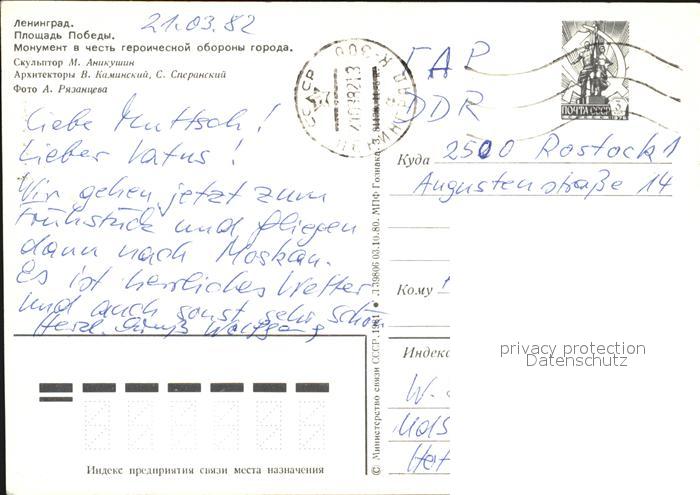 Ленинград.
Площадь Победы.
Монумент в честь героической обороны города.
Скульптор М. Аникушин
Архитекторы В. Каминский, С. Сперанский
Фото А. Рязанцева
21.03.82
Liebe Muttsch!
Lieber Vatus!
Wir gehen jetzt zum
Frühstück und fliegen
dann nach Moskau.
Es ist herrliches Wetter
und auch sonst sehr schön
Herzl. Gruß Wolfgang
Индекс предприятия связи места назначения
© Министерство связи СССР. 1981 • Л39806 03.10.80. МПФ Гознака.
ПОЧТА СССР
ГДР
DDR
Куда 2500 Rostock 1
Augustenstraße 14
Кому
Индекс
W.
privacy protection
Datenschutz